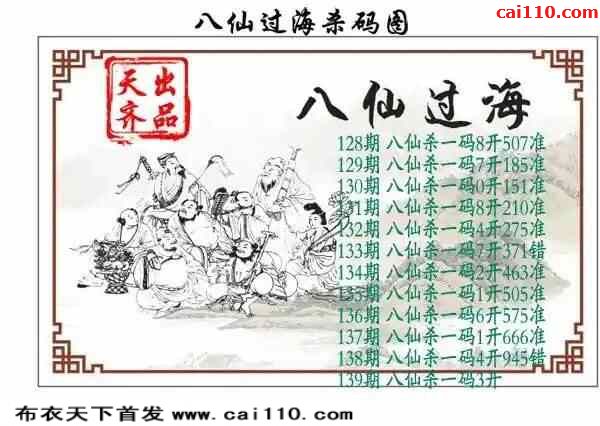 八仙过海杀码图
cai110.com
天齐
出品
八仙过海
128期 八仙杀一码8开507准
129期 八仙杀一码7开185准
130期 八仙杀一码0开151准
131期 八仙杀一码8开210准
132期 八仙杀一码4开275准
133期 八仙杀一码7开371错
134期 八仙杀一码2开463准
135期 八仙杀一码1开505准
136期 八仙杀一码6开575准
137期 八仙杀一码1开666准
138期 八仙杀一码4开945错
139期 八仙杀一码3开
布衣天下首发 www.cai110.com